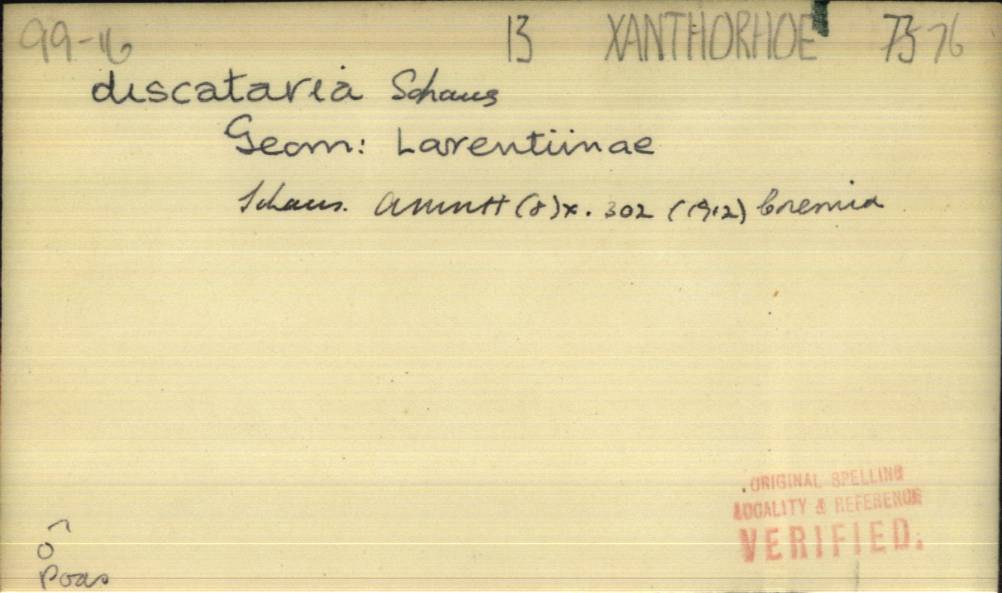 99-16 13 XANTHORHOE 7576
discataria Schaus
Geom: Larentiinae
Schaus. AMNH (8)x. 302 (1912) Cremia
ORIGINAL SPELLING
LOCALITY & REFERENCE
VERIFIED.
Poas